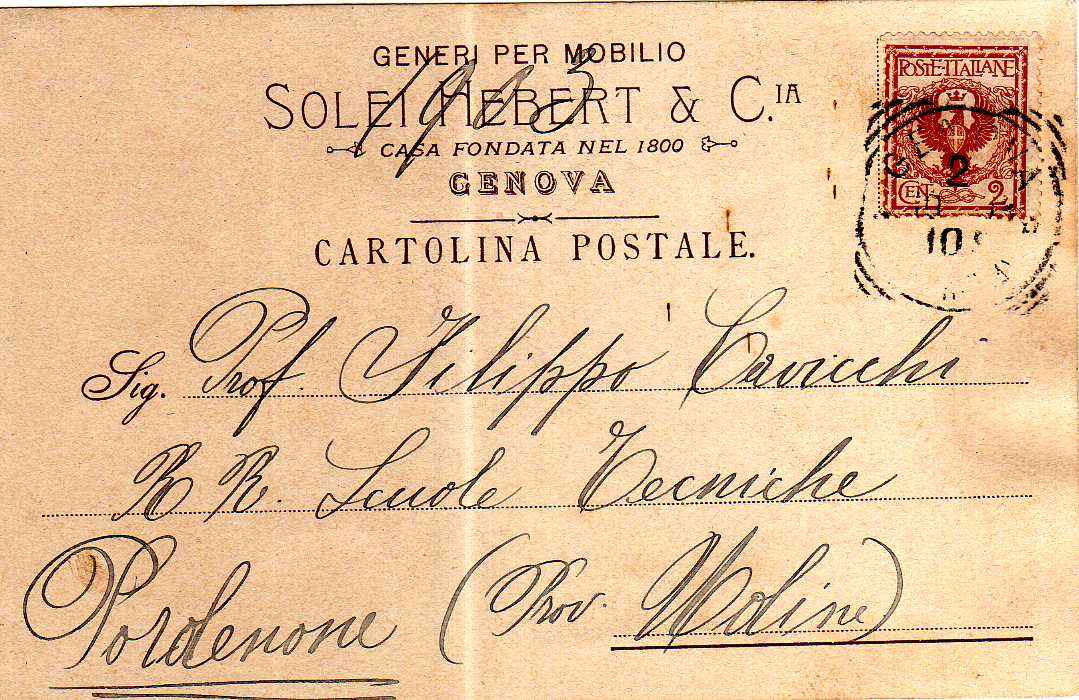 GENERI PER MOBILIO
SOLEI HEBERT & C.IA
1903
CASA FONDATA NEL 1800
GENOVA
CARTOLINA POSTALE.
POSTE·ITALIANE
2
CEN. 2
10
Sig. Prof. Filippo Cavicchi
R R. Scuole Tecniche
Pordenone (Prov. Udine)